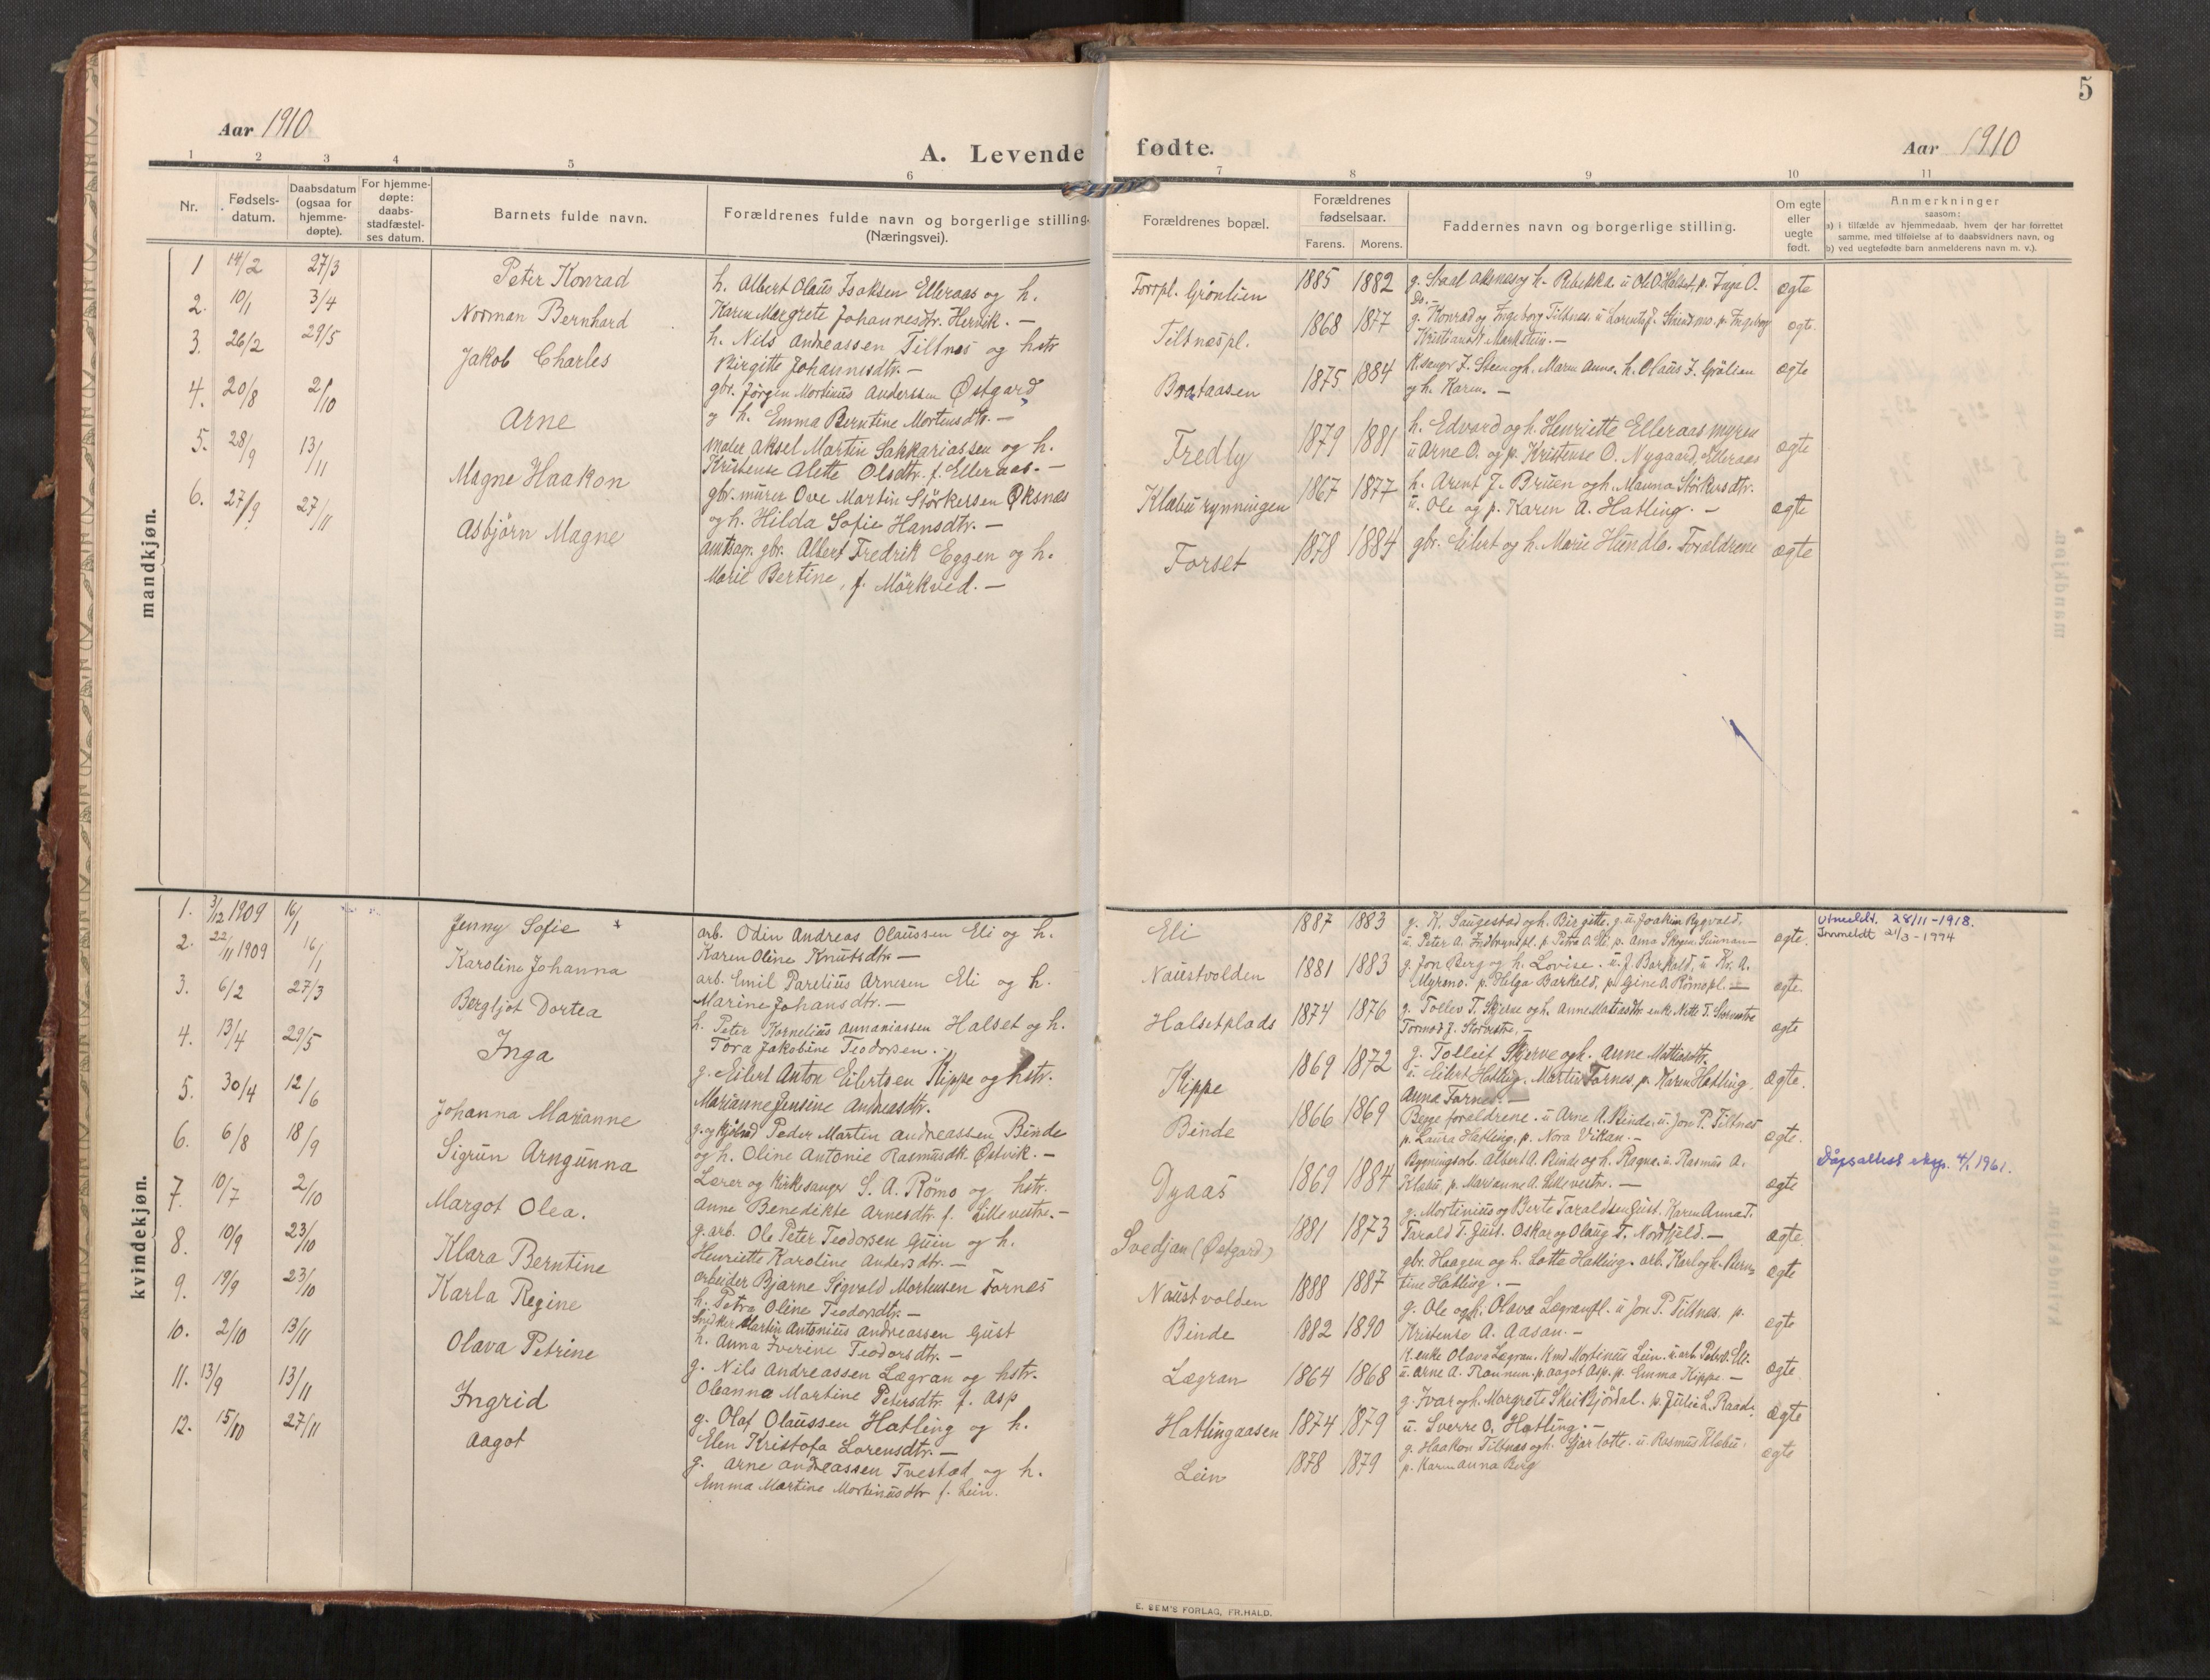 5
Aar 1910
A. Levende fødte.
Aar 1910
1 2 3 4 5 6 7 8 9 10 11
Nr.
Fødsels-
datum.
Daabsdatum
(ogsaa for
hjemme-
døpte).
For hjemme-
døpte:
daabs-
stadfæstel-
ses datum.
Barnets fulde navn.
Forældrenes fulde navn og borgerlige stilling.
(Næringsvei).
Forældrenes bopæl.
Forældrenes
fødselsaar.
Farens. Morens.
Faddernes navn og borgerlige stilling.
Om egte
eller
uegte
født.
Anmerkninger
saasom:
a) i tilfælde av hjemmedaab, hvem der har forrettet
samme, med tilføielse af to daabsvidners navn, og
b) ved uegtefødte barn anmelderens navn m. v.).
mandkjøn.
1 14/2 27/3 Peter Konrad
h. Albert Olaus Isaksen Elleraas og h.
Karen Margrete Johannesdtr. Hervik. —
Forrpl. Grønlien 1885 1882 ægte
2. 10/1 3/4 Norman Bernhard
h. Nils Andreassen Tiltnes og hstr
Birgitte Johannesdtr. —
Tiltnespl. 1868 1877
g. Konrad og Ingeborg Tiltnes. u Lorents J. p. Ingeborg
egt.
3. 26/2 29/5 Jakob Charles
gbr. Jørgen Mortinus Anderssen Østgard
og h. Emma Berntine Mortensdtr. —
Brataasen 1875 1884
K.sanger J. Steen og h. Maren Anna. h. Olaus J. Grölien
og h. Karen. —
ægte
4. 20/8 2/10 Arne
maler Aksel Martin Sakkariassen og h.
Kristense Alette Olsdtr. f. Elleraas. —
Fredly 1879 1881
h. Edvard og h. Henriette Elleraasmyren
u Arne O. og p. Kristense O. Nygaard, Elleraas
ægte
5. 28/9 13/11 Magne Haakon
gbr. murer Ove Martin Störkersen Øksnes
og h. Hilda Sofie Hansdtr. —
Klæburynningen 1867 1877
h. Arent J. Bruen og h. Manna Störkersdtr.
u. Ole og p. Karen A. Hatling. —
ægte
6. 27/9 27/11 Asbjörn Magne
amtsagr. gbr. Albert Fredrik Eggen og h.
Marie Bertine, f. Mörkved. —
Forset 1878 1884
gbr. Eilert og h. Marie Hundlo. Forældrene
ægte
kvindekjøn.
1. 3/12 1909 16/1 Jenny Sofie
arb. Odin Andreas Olaussen Eli og h.
Karen Oline Knutsdtr. —
Eli 1887 1883
g. K. Saugestad og h. Birgitte. g. u. Joakim Rygvold.
ægte.
Utmeldt. 28/11-1918.
Innmeldt 21/3-1994
2. 22/11 1909 16/1 Karoline Johanna
arb. Emil Parelius Arnesen Eli og h.
Marine Johansdtr. —
Naustvolden 1881 1883
g. Jon Berg og h. Lovise. u. J. Barkald, u Kr. A.
Myrmo. p. Helga Barkald, p. Gine A Römopl. —
ægte.
3. 6/2 27/3 Bergljot Dortea
h. Peter Kornelius Annaniassen Halset og h.
Tora Jakobine Teodorsen. —
Halsetplads 1874 1876
ægte
4. 13/4 29/5 Inga
g. Eilert Anton Eilertsen Kippe og hstr.
Marianne Jensine Andreasdtr.
Kippe 1869 1872
g. Tolleif Skjerve og h. Anne Mattiasdtr.
u. Eilert Hatling, Martin Fornes, p. Karen Hatling.
Anna Fornes. —
ægte.
5. 30/4 12/6 Johanna Marianne
g. og Peder Martin Andreassen Binde
og h. Oline Antonie Rasmusdtr. Østvik. —
Binde 1866 1869
Begge forældrene. u Arne A. Binde, u. Jon P. Tiltnes
p. Laura Hatling, p. Nora Vikan. —
ægte.
6. 6/8 18/9 Sigrun Arngunna
Lærer og kirkesanger S. A. Römo og hstr.
Anne Benedikte Arnesdtr. f. Lillevestre. —
Dyaas 1869 1884
Bygningsarb. Albert A. Binde og h. Ragna. u. Rasmus A.
Klæbu, p. Marianne A. Lillevestre. —
ægte
Dåpsattest eksp. 4/1 1961.
7. 10/7 2/10 Margot Olea.
g. arb. Ole Peter Teodorsen Guin og h.
Henriette Karoline Andersdtr. —
Svedjan (Østgard) 1881 1873
g. Mortinius og Berte Taraldsen Gust. Karen Anna T.
Tarald T. Gust. Oskar og Olaug T. Nordfjeld. —
ægte.
8. 10/9 23/10 Klara Berntine
arbeider Bjarne Sigvald Mortensen Fornes
h. Petra Oline Teodorsdtr. —
Naustvolden 1888 1887
gbr. Haagen og h. Lotte Hatling. arb. Karl og h. Bern-
tine Hatling. —
ægte
9. 19/9 23/10 Karla Regine
Snidker Martin Antonius Andreassen Gust
h. Anna Iverine Teodorsdtr. —
Binde 1882 1890
g. Ole og h. Olava Lægranpl. u Jon P. Tiltnes. p.
Kristense A. Aasan. —
ægte
10. 2/10 13/11 Olava Petrine
g. Nils Andreassen Lægran og hstr.
Oleanna Martine Petersdtr. f. Asp
Lægran 1864 1868
K. enke Olava Lægran. Kmd Mortinus Lein.
u Arne A. p. Aagot Asp. p. Emma Kippe. —
ægte.
11. 13/9 13/11 Ingrid
g. Olaf Olaussen Hatling og h.
Elen Kristofa Lorensdtr. —
Hatlingaasen 1874 1879
g. Ivar og h. Margrete Skei Kjördal. p. Julie L. Raade.
u. Sverre O. Hatling. —
ægte
12. 15/10 27/11 Aagot
g. Arne Andreassen Tvestad og h.
Emma Martine Mortinusdtr f. Lein.
Lein 1878 1879
g. Haakon Tiltnes og h. Sjarlotte. u. Rasmus Klæbu.
p. Karen Anna Berg
ægte
E. SEM'S FORLAG, FR.HALD.